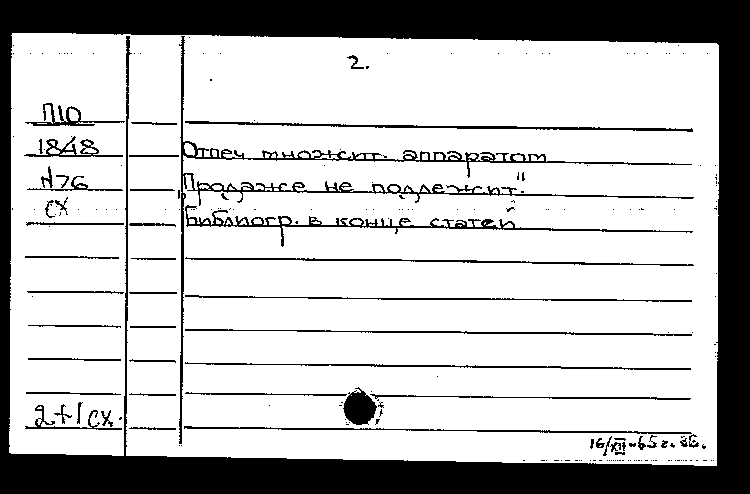 2.
П10
1848
N76
сх
Отпеч множит. аппаратом
"Продаже не подлежит."
Библиогр. в конце статей
2+1 сх.
16/XII-65 г.